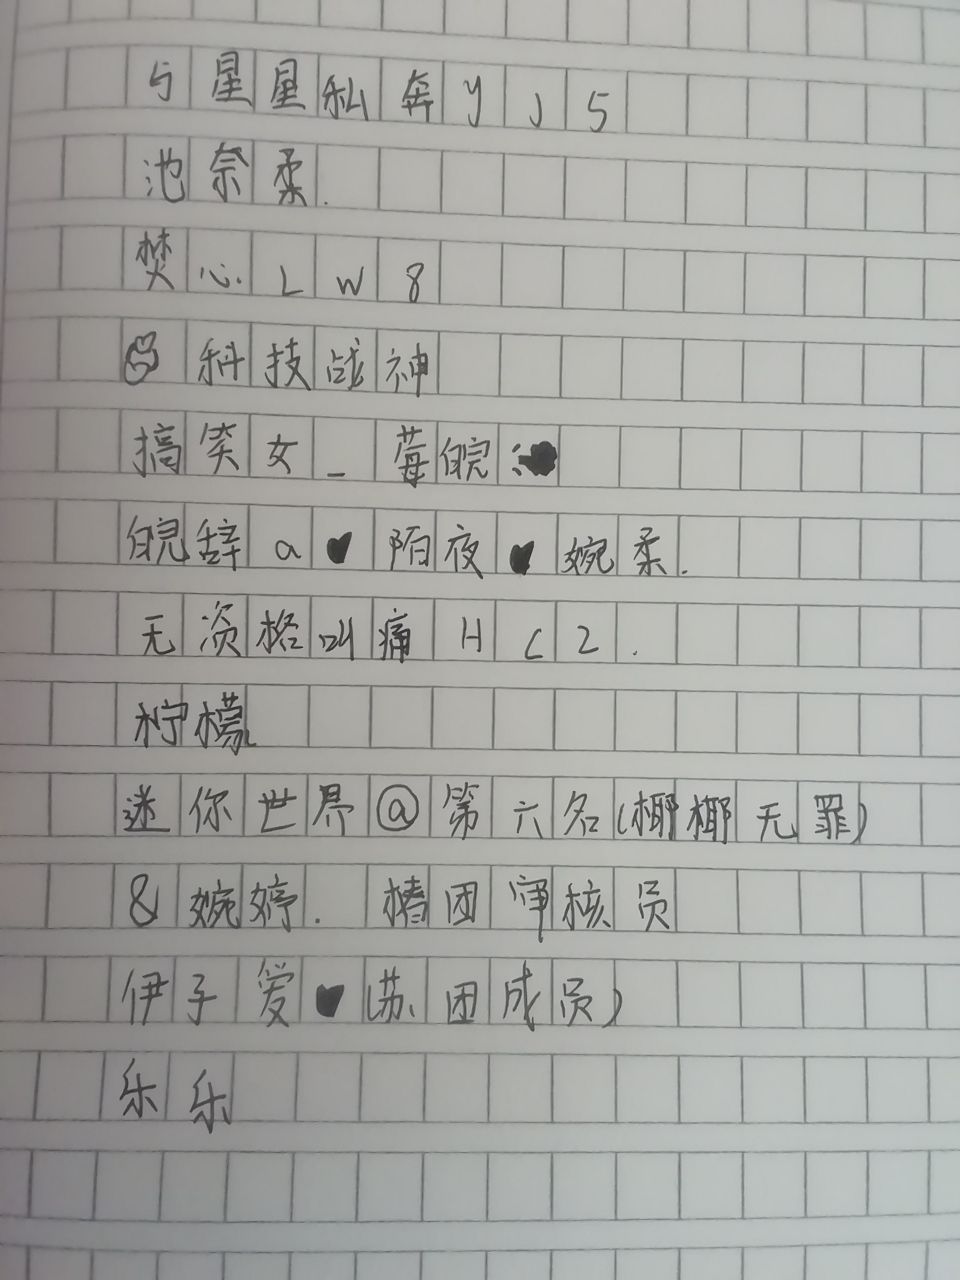 与星星私奔yJ5
池奈柔.
焚心LW8
科技战神
搞笑女_莓皖:
皖辞a♥陌夜♥婉柔.
无资格叫痛HC2.
柠檬
迷你世界@第六名(椰椰无罪)
&婉婷. 椿团审核员
伊子爱♥(苏团成员)
乐乐